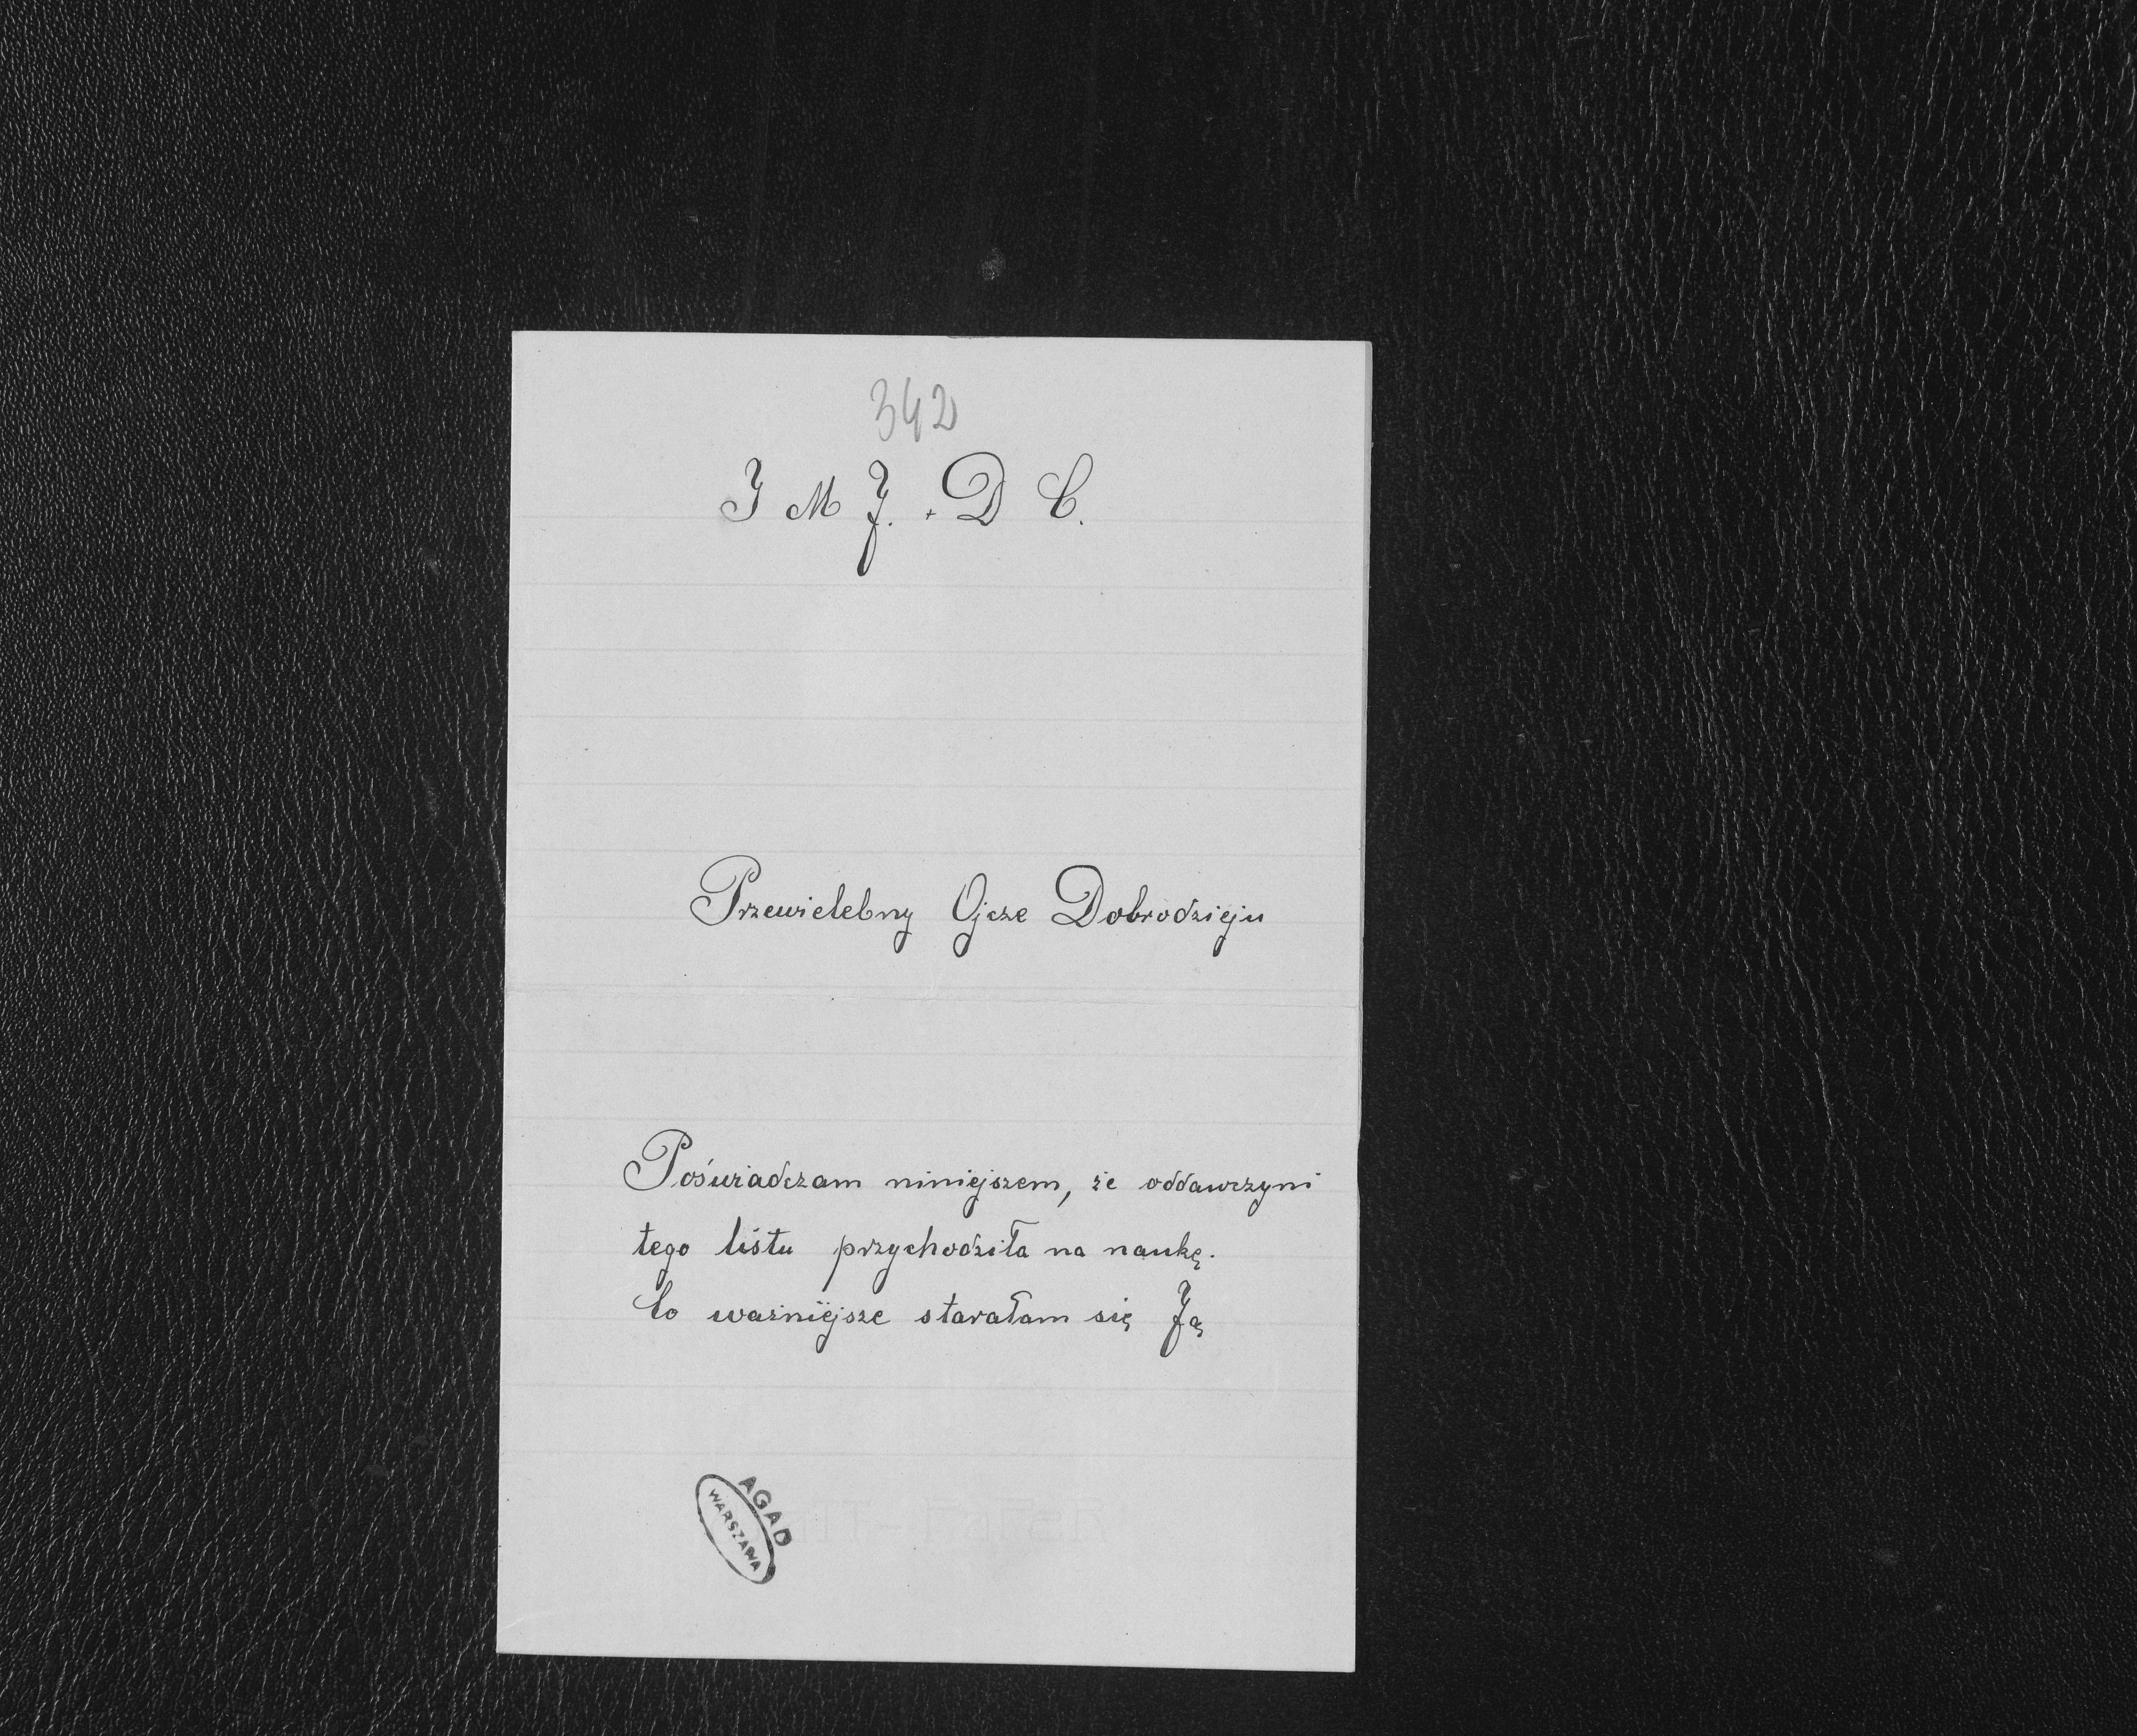 342
J M J. + D C.
Przewielebny Ojcze Dobrodzieju
Poświadczam niniejszem, że oddawczyni
tego listu przychodziła na naukę.
Co ważniejsze starałam się Ją
AGAD
WARSZAWA